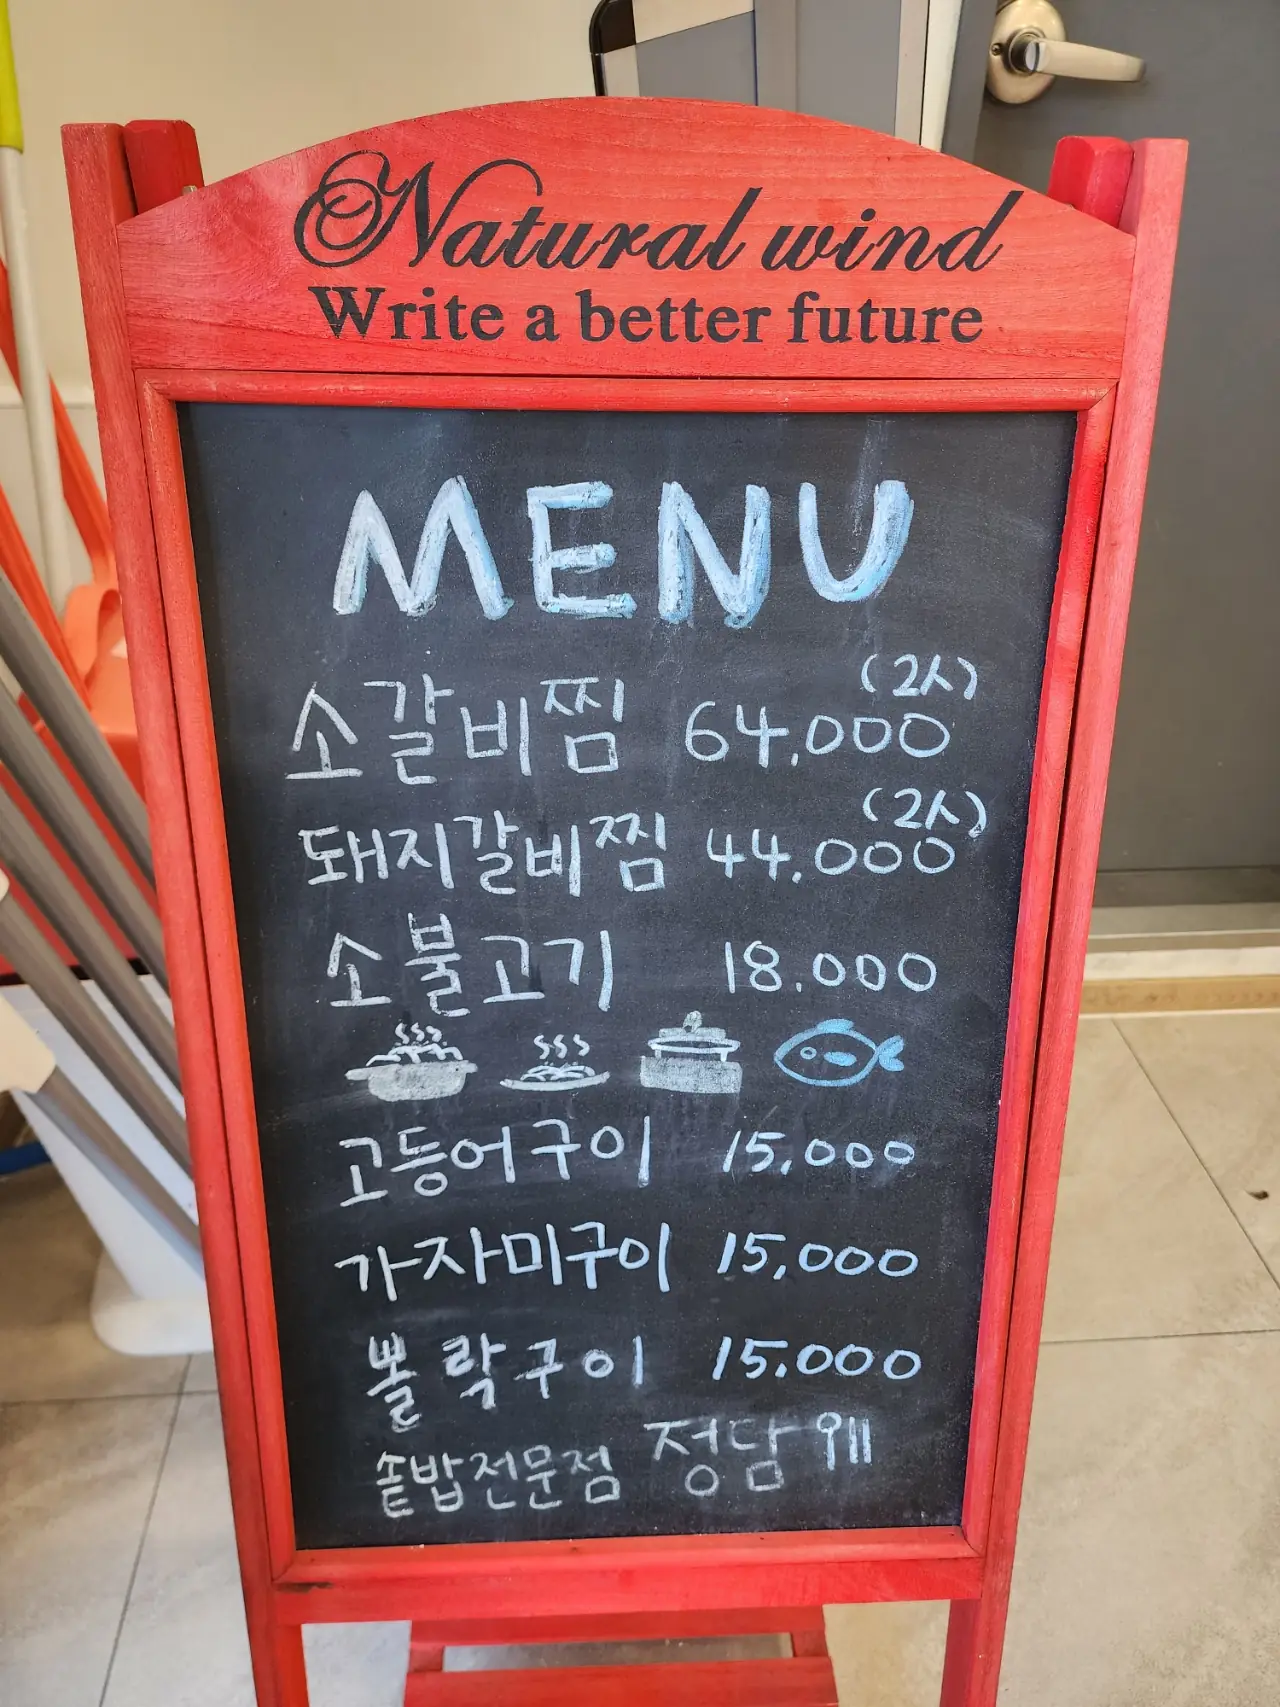 Natural wind
Write a better future
MENU
(2人)
소갈비찜 64,000
(2人)
돼지갈비찜 44,000
소불고기 18.000
고등어구이 15,000
가자미구이 15,000
뽈락구이 15.000
솥밥전문점 정담